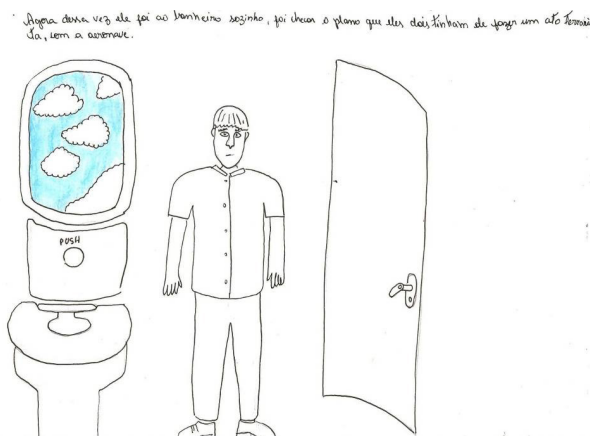 Agora dessa vez ele foi ao banheiro sozinho, foi checar o plano que eles dois tinham de fazer um ato Terroris
ta, com a aeronave.
PUSH